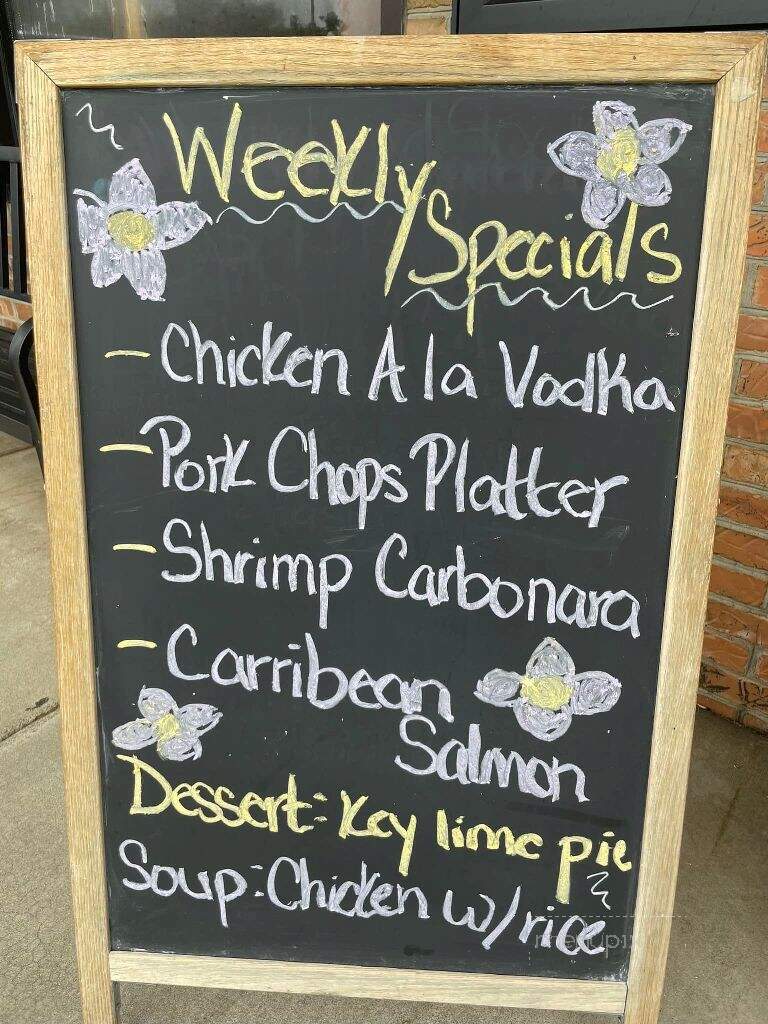 Weekly
Specials
- Chicken A la Vodka
- Pork Chops Platter
- Shrimp Carbonara
- Carribean
Salmon
Dessert: Key lime pie
Soup: Chicken w/ rice